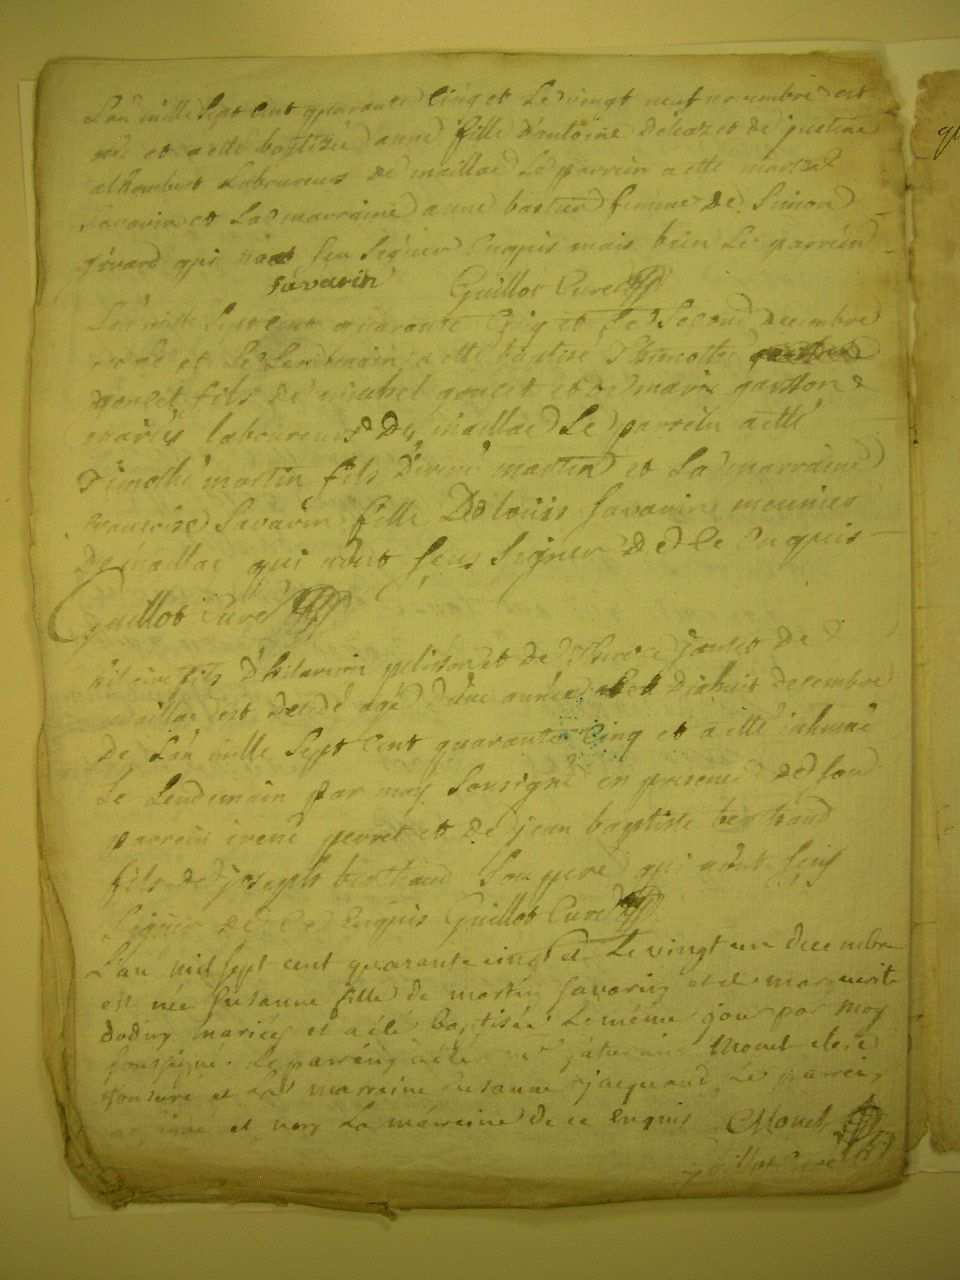 L'an mille sept cent quarante cinq et le vingt neuf novembre est
née et a etté baptisée anne fille d'antoine et de justine
alhombert laboureurs de maillac le parrein a etté
savarin et la marraine anne bastier femme de simon
girard qui n'ont seu signer enquis mais bein le parrein
savarin Guillot Curé
L'an mille sept cent quarante cinq et le second decembre
est né et le lendemain a etté baptisé Thimothé
goncet fils de michel goncet et de marie
mariés laboureurs de maillac le parrein a etté
Timothé martin fils d'irené martin et la marraine
francoise savarin fille de loüis savarin meunier
de maillac qui n'ont seus signer de ce enquis
Guillot Curé
hilaire fils d'hilarion pelisson et de de
maillac est decedé agé d'une année le dixhuit decembre
de l'an mille sept cent quarante cinq et a etté inhumé
le lendemain par moy sousigné en presence de son
parrein irené perret et de jean baptiste bertrand
fils de joseph bertrand son pere qui n'ont seus
signer de ce enquis Guillot Curé
L'an mil sept cent quarante cinq et le vingt un decembre
est née susanne fille de martin savarin et de marguerite
mariés et a été baptisée le même jour par moy
soussigné. le parrein a été mr saturnin Monet clerc
tonsuré et la marreine susanne jacquand, le parrein
et non la mareine de ce enquis Monet
guillot curé